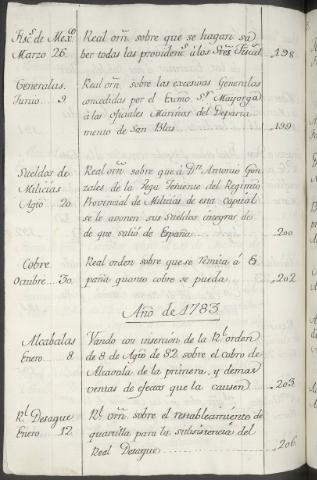 Fisc.ˢ de Mex.ᶜᵒ Real orñ. sobre que se hagan sa-
Marzo 26. ber todas las providenc.ˢ á los Sres Fiscal. 198
Generalas. Real orñ sobre las excesivas Generalas
Junio 9 concedidas por el Exmo S.ʳ Mayorga
á las oficiales Marinas del Departa-
mento de San Blas 199
Sueldos de Real orñ sobre que á Dⁿ Antonio Gon-
Milicias zales de la Vega Teniente del Regimto
Agto 20. Provincial de Milicias de esta Capital
se le avonen sus sueldos integros des-
de que salió de España 200
Cobre Real orden sobre que se remita á Es-
Octubre 30. paña quanto cobre se pueda 202
Año de 1783.
Alcabalas Vando con insercion de la R.ˡ orden
Enero 8 de 8 de Agto de 82 sobre el cobro de
Alcavala de la primera, y demas
ventas de efectos que la causen 203
R.ˡ Desague R.ˡ orñ sobre el restablecimiento de
Enero 12. quartilla para la subsistencia del
Real Desague 206